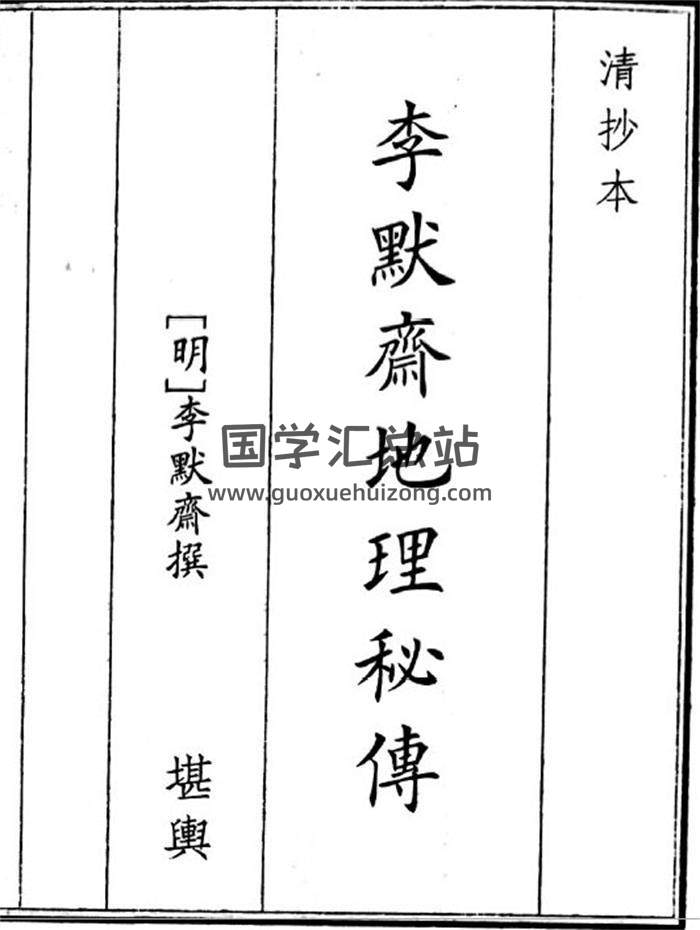 清抄本
李默齋地理秘傳
[明]李默齋撰
堪輿
国学汇总站
www.guoxuehuizong.com